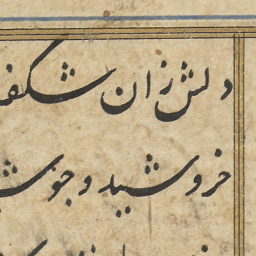 دلش زان شگفـ
خروشید و جوشیـ